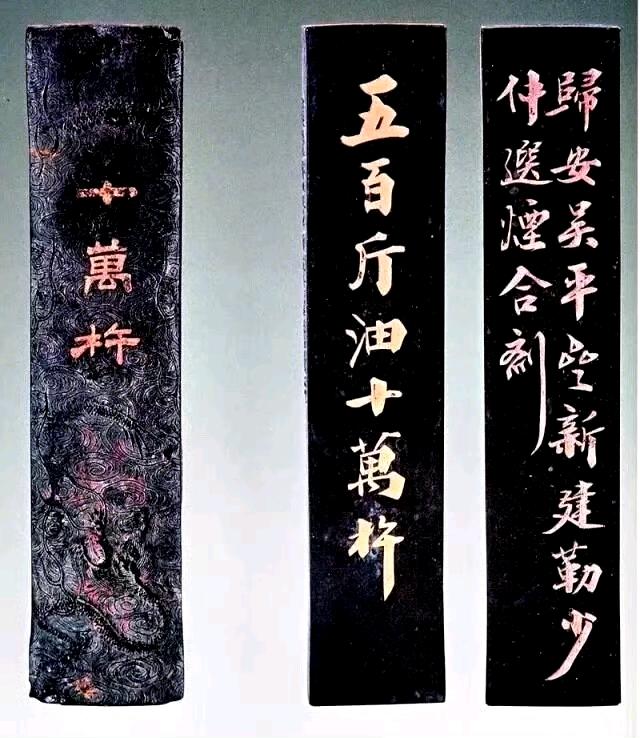 十萬杵
五百斤油十萬杵
歸安吳平齋新建勒少
仲選煙合劑